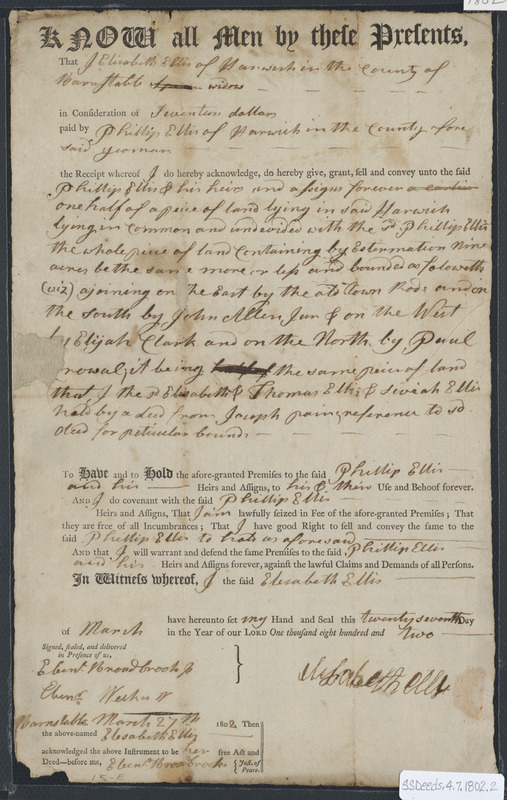 1802
KNOW all Men by these Presents,
That I Elisabeth Ellis of Harwich in the County of
Barnstable widow
in Consideration of Seventeen dollars
paid by Phillip Ellis of Harwich in the County afore
said yeoman
the Receipt whereof I do hereby acknowledge, do hereby give, grant, sell and convey unto the said
Phillip Ellis & his heirs and assigns forever a certain
one half of a piece of land lying in said Harwich
lying in common and undivided with the sd Phillip Ellis
the whole piece of land Containing by Estermation Nine
acres be the same more or less and bounded as foloweth
(viz) ajoining on the East by the old town Rode and on
the South by John Allen Jun & on the West
by Elijah Clark and on the North by Paul
it being half of the same piece of land
that I the sd Elisabeth & Thomas Ellis & Ellis
held by a deed from Joseph reference to sd
deed for peticular bounds
To Have and to Hold the afore-granted Premises to the said Phillip Ellis
and his Heirs and Assigns, to his & their Use and Behoof forever.
AND I do covenant with the said Phillip Ellis
Heirs and Assigns, That I am lawfully seized in Fee of the afore-granted Premises; That
they are free of all Incumbrances; That I have good Right to sell and convey the same to the
said Phillip Ellis to hold as aforesaid
AND that I will warrant and defend the same Premises to the said Phillip Ellis
and his Heirs and Assigns forever, against the lawful Claims and Demands of all Persons.
In Witness whereof, I the said Elesabeth Ellis
have hereunto set my Hand and Seal this twenty seventh Day
of March in the Year of our LORD One thousand eight hundred and two
Signed, sealed, and delivered
in Presence of us,
Ebenr Broadbrooks Jr
Ebenr
Elisabeth Ellis
Barnstable March 27th 1802. Then
the above-named Elesabeth Ellis
acknowledged the above Instrument to be her free Act and
Deed—before me, Ebenr Broadbrooks Just. of Peace.
SSDeeds.4.7.1802.2